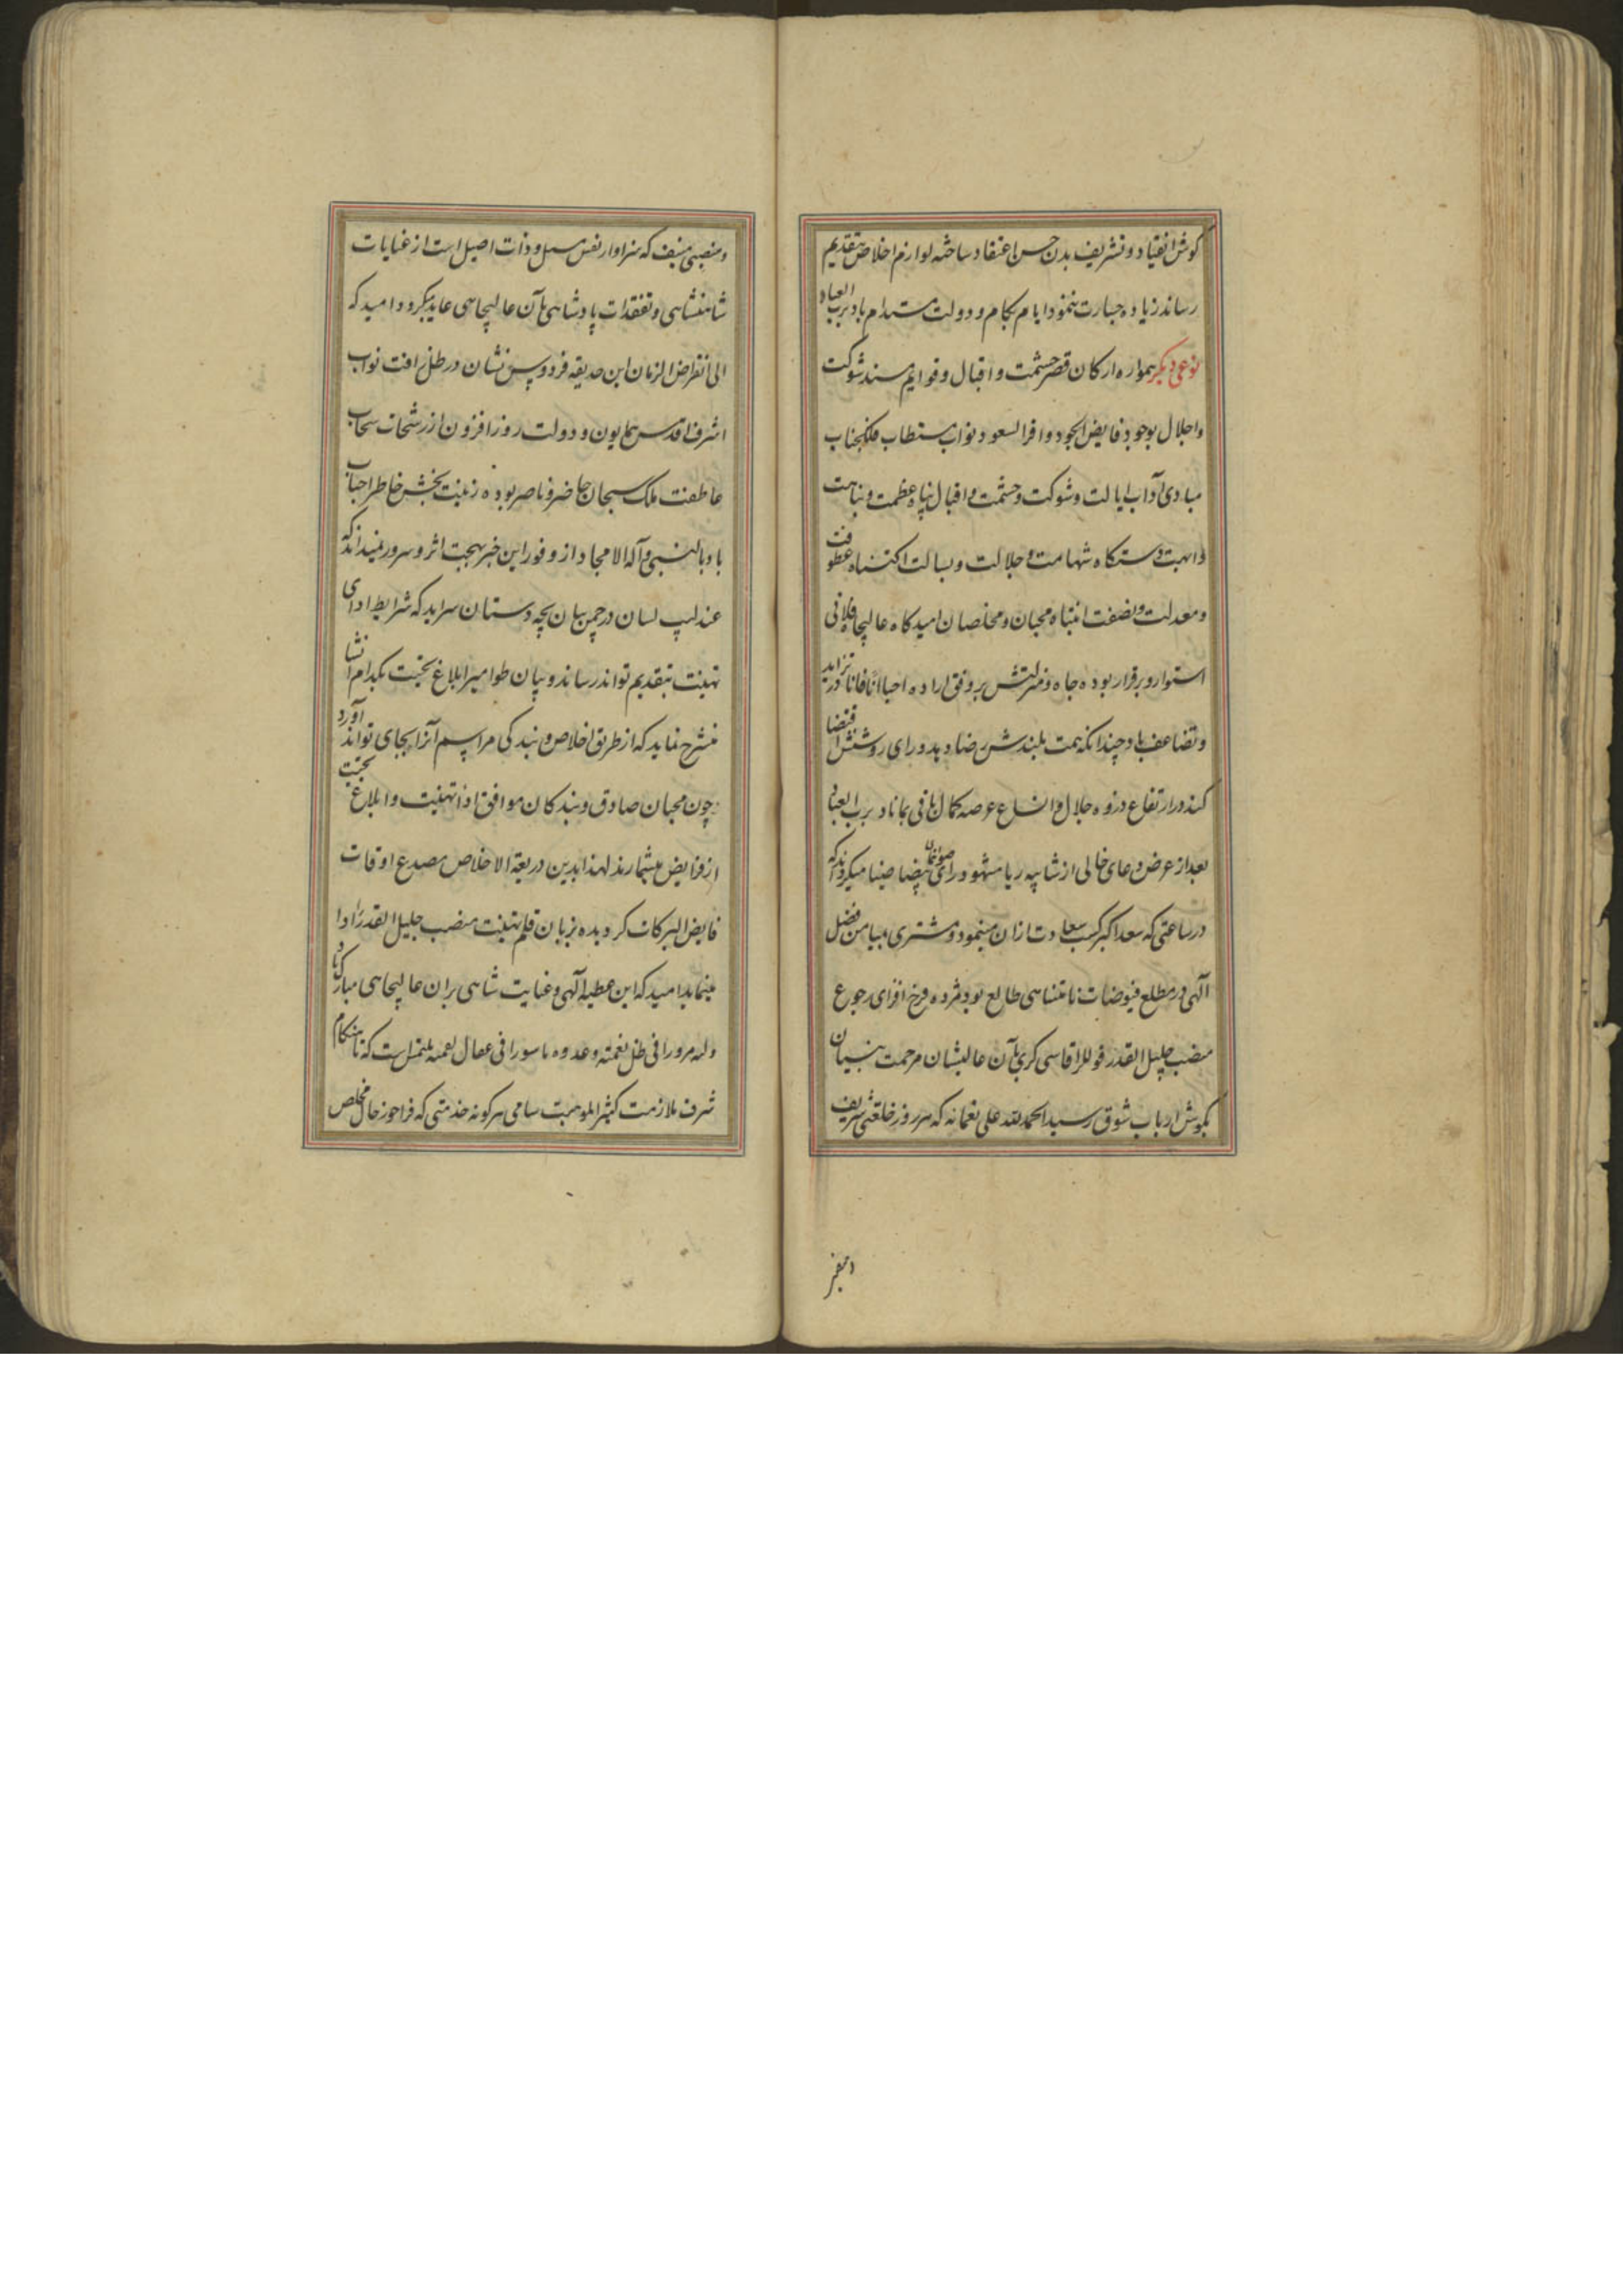 کوش انقیاد و تشریف بدن حسن اعتقاد ساخته لوازم اخلاص بتقدیم
رساند زیاده جسارت ننمود ایام بکام و دولت مستدام باد برب العباد
نوعی دیکر همواره ارکان قصر حشمت و اقبال و قوایم مسند شوکت
و اجلال بوجود فایض الجود وافر السعود نواب مستطاب فلکجناب
مبادی آداب ایالت و شوکت و حشمت و اقبال پناه عظمت و نباهت
و ابهت دستکاه شهامت و جلالت و بسالت اکتناه عطوفت
و معدلت و نصفت انتباه محبان و مخلصان امیدکاه عالیجاه فلانی
استوار و برقرار بوده جاه و منزلتش بر وفق اراده احبا آنا فانا در تزاید
و تضاعف باد چندانکه همت بلندش رضا دهد و رای روشنش اقتضا
کند در ارتفاع ذروه جلال و اتساع عرصه کمال باقی بماناد برب العباد
بعد از عرض دعای خالی از شایبه ریا مشهود رای صوابنمای بیضا ضیا میکرداند که
در ساعتی که سعد اکبر کسب سعادت ازان مینمود و مشتری میامن فضل
آلهی در مطلع فیوضات نامتناهی طالع بود مژده فرخ افزای رجوع
منصب جلیل القدر قوللر اقاسی کری بآن عالیشان مرحمت بنیان
بکوش ارباب شوق رسید الحمدلله علی نعمائه که هر روز خلعتی شریف
و منصبی منیف که سزاوار نفس و ذات اصیل است از عنایات
شاهنشاهی و تفقدات پادشاهی بآن عالیجاهی عاید میکردد امید که
الی انقراض الزمان این حدیقه فردوس نشان در ظل رافت نواب
اشرف اقدس همایون و دولت روز افزون از رشحات سحاب
عاطفت ملک سبحان حاضر و ناصر بوده زینت بخش خاطر احباب
باد بالنبی و آله الامجاد از وفور این خبر بهجت اثر و سرور نمیداند که
عندلیب لسان در چمن بیان بچه دستان سراید که شرایط ادای
تهنیت بتقدیم تواند رساند و بیان طوامیر ابلاغ تحیت بکدام انشا
منشرح نماید که از طریق اخلاص و بندکی مراسم آنرا بجای تواند آورد
چون محبان صادق و بندکان موافق ادا تهنیت و ابلاغ تحیت
از فرایض میشمارند لهذا بدین ذریعة الاخلاص مصدع اوقات
فایض البرکات کردیده بزبان قلم تهنیت منصب جلیل القدر را ادا
مینماید امید که این عطیه آلهی و عنایت شاهی بران عالیجاهی مبارک باد
و له مرورا فی ظل نعمته و عدوه ماسورا فی عقال نقمته ملتمس است که تا هنکام
شرف ملازمت کثیر الموهبت سامی هرکونه خدمتی که فراخور حال مخلص